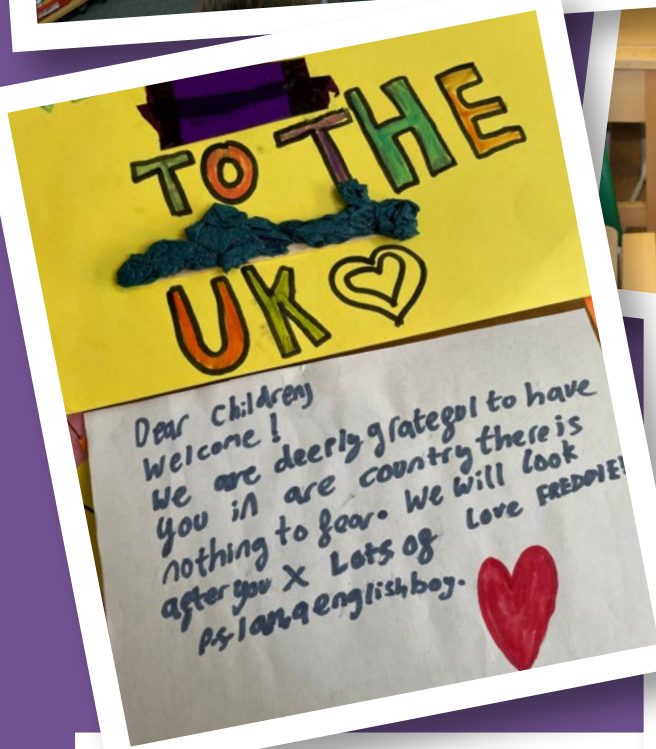 TO THE
UK
Dear Children,
Welcome!
We are deerly grategul to have
you in are country there is
nothing to fear. We will look
after you X Lots of Love FREDDIE!
P.S I am a english boy.